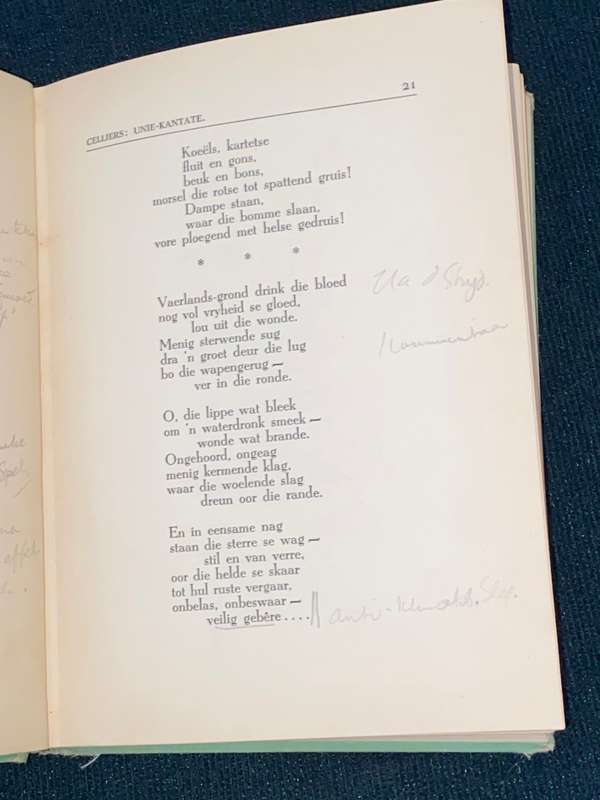 CELLIERS: UNIE-KANTATE.
21
Koeëls, kartetse
fluit en gons,
beuk en bons,
morsel die rotse tot spattend gruis!
Dampe staan,
waar die bomme slaan,
vore ploegend met helse gedruis!
* * *
Vaerlands-grond drink die bloed
nog vol vryheid se gloed,
lou uit die wonde.
Menig sterwende sug
dra 'n groet deur die lug
bo die wapengerug —
ver in die ronde.
O, die lippe wat bleek
om 'n waterdronk smeek —
wonde wat brande.
Ongehoord, ongeag
menig kermende klag,
waar die woelende slag
dreun oor die rande.
En in eensame nag
staan die sterre se wag —
stil en van verre,
oor die helde se skaar
tot hul ruste vergaar,
onbelas, onbeswaar —
veilig gebêre ....
Na d Stryd.